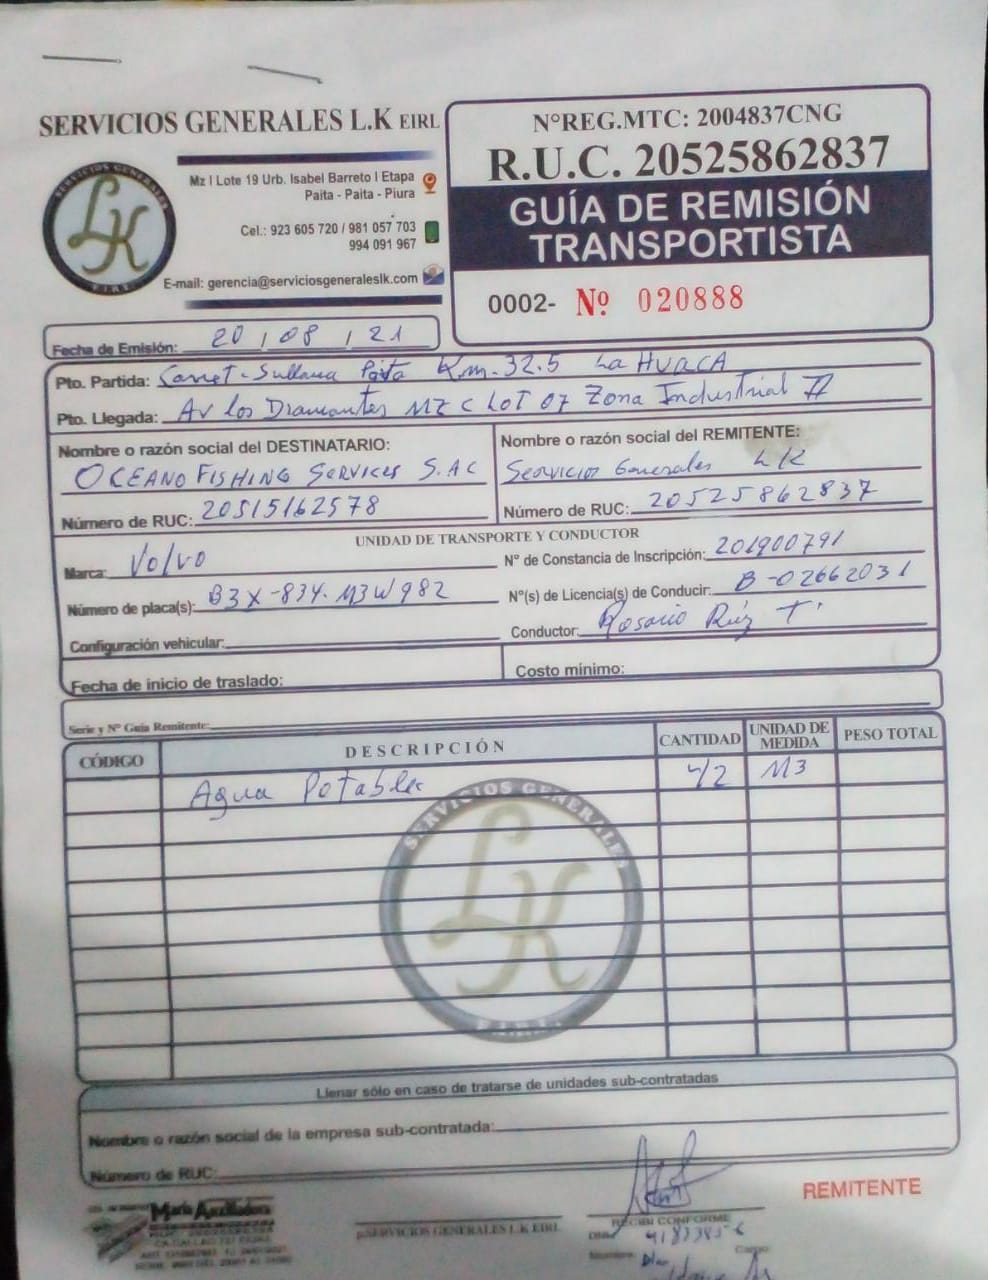 SERVICIOS GENERALES L.K EIRL
SERVICIOS GENERALES
LK
E.I.R.L
Mz I Lote 19 Urb. Isabel Barreto I Etapa
Paita - Paita - Piura
Cel.: 923 605 720 / 981 057 703
994 091 967
E-mail: gerencia@serviciosgeneraleslk.com
N°REG.MTC: 2004837CNG
R.U.C. 20525862837
GUÍA DE REMISIÓN
TRANSPORTISTA
0002- Nº 020888
Fecha de Emisión: 20 / 08 / 21
Pto. Partida: Carret-Sullana Paita Km-32.5 La HUACA
Pto. Llegada: Av los Diamantes MZ C LOT 07 Zona Industrial II
Nombre o razón social del DESTINATARIO:
OCEANO FISHING Services S.AC
Número de RUC: 20515162578
Nombre o razón social del REMITENTE:
Servicios Generales LK
Número de RUC: 20525862837
UNIDAD DE TRANSPORTE Y CONDUCTOR
Marca: Volvo
N° de Constancia de Inscripción: 201900791
Número de placa(s): B3X-834. M3W982
N°(s) de Licencia(s) de Conducir: B-02662031
Configuración vehicular:
Conductor: Rosario Ruíz T.
Fecha de inicio de traslado:
Costo mínimo:
Serie y N° Guía Remitente:
CÓDIGO DESCRIPCIÓN CANTIDAD UNIDAD DE MEDIDA PESO TOTAL
Agua Potable 42 M3
SERVICIOS GENERALES
LK
E.I.R.L
Llenar sólo en caso de tratarse de unidades sub-contratadas
Nombre o razón social de la empresa sub-contratada:
Número de RUC:
María Auxiliadora
pSERVICIOS GENERALES L.K EIRL
RECIBI CONFORME
DNI:
Nombre:
Cargo:
REMITENTE